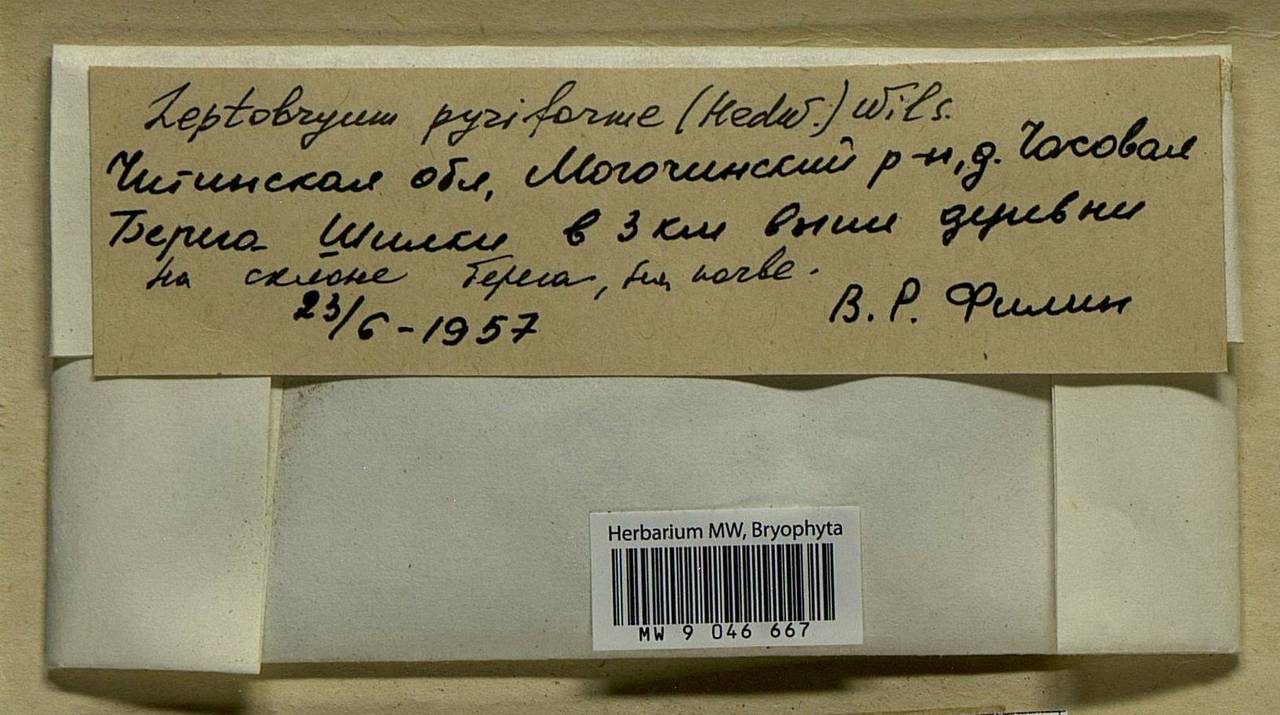 Leptobryum pyriforme (Hedw.) Wils.
Читинская обл, Могочинский р-н, д. Часовая
Берега Шилки в 3 км выше деревни
на склоне берега, на почве.
23/6-1957
В. Р. Филин
Herbarium MW, Bryophyta
MW 9 046 667